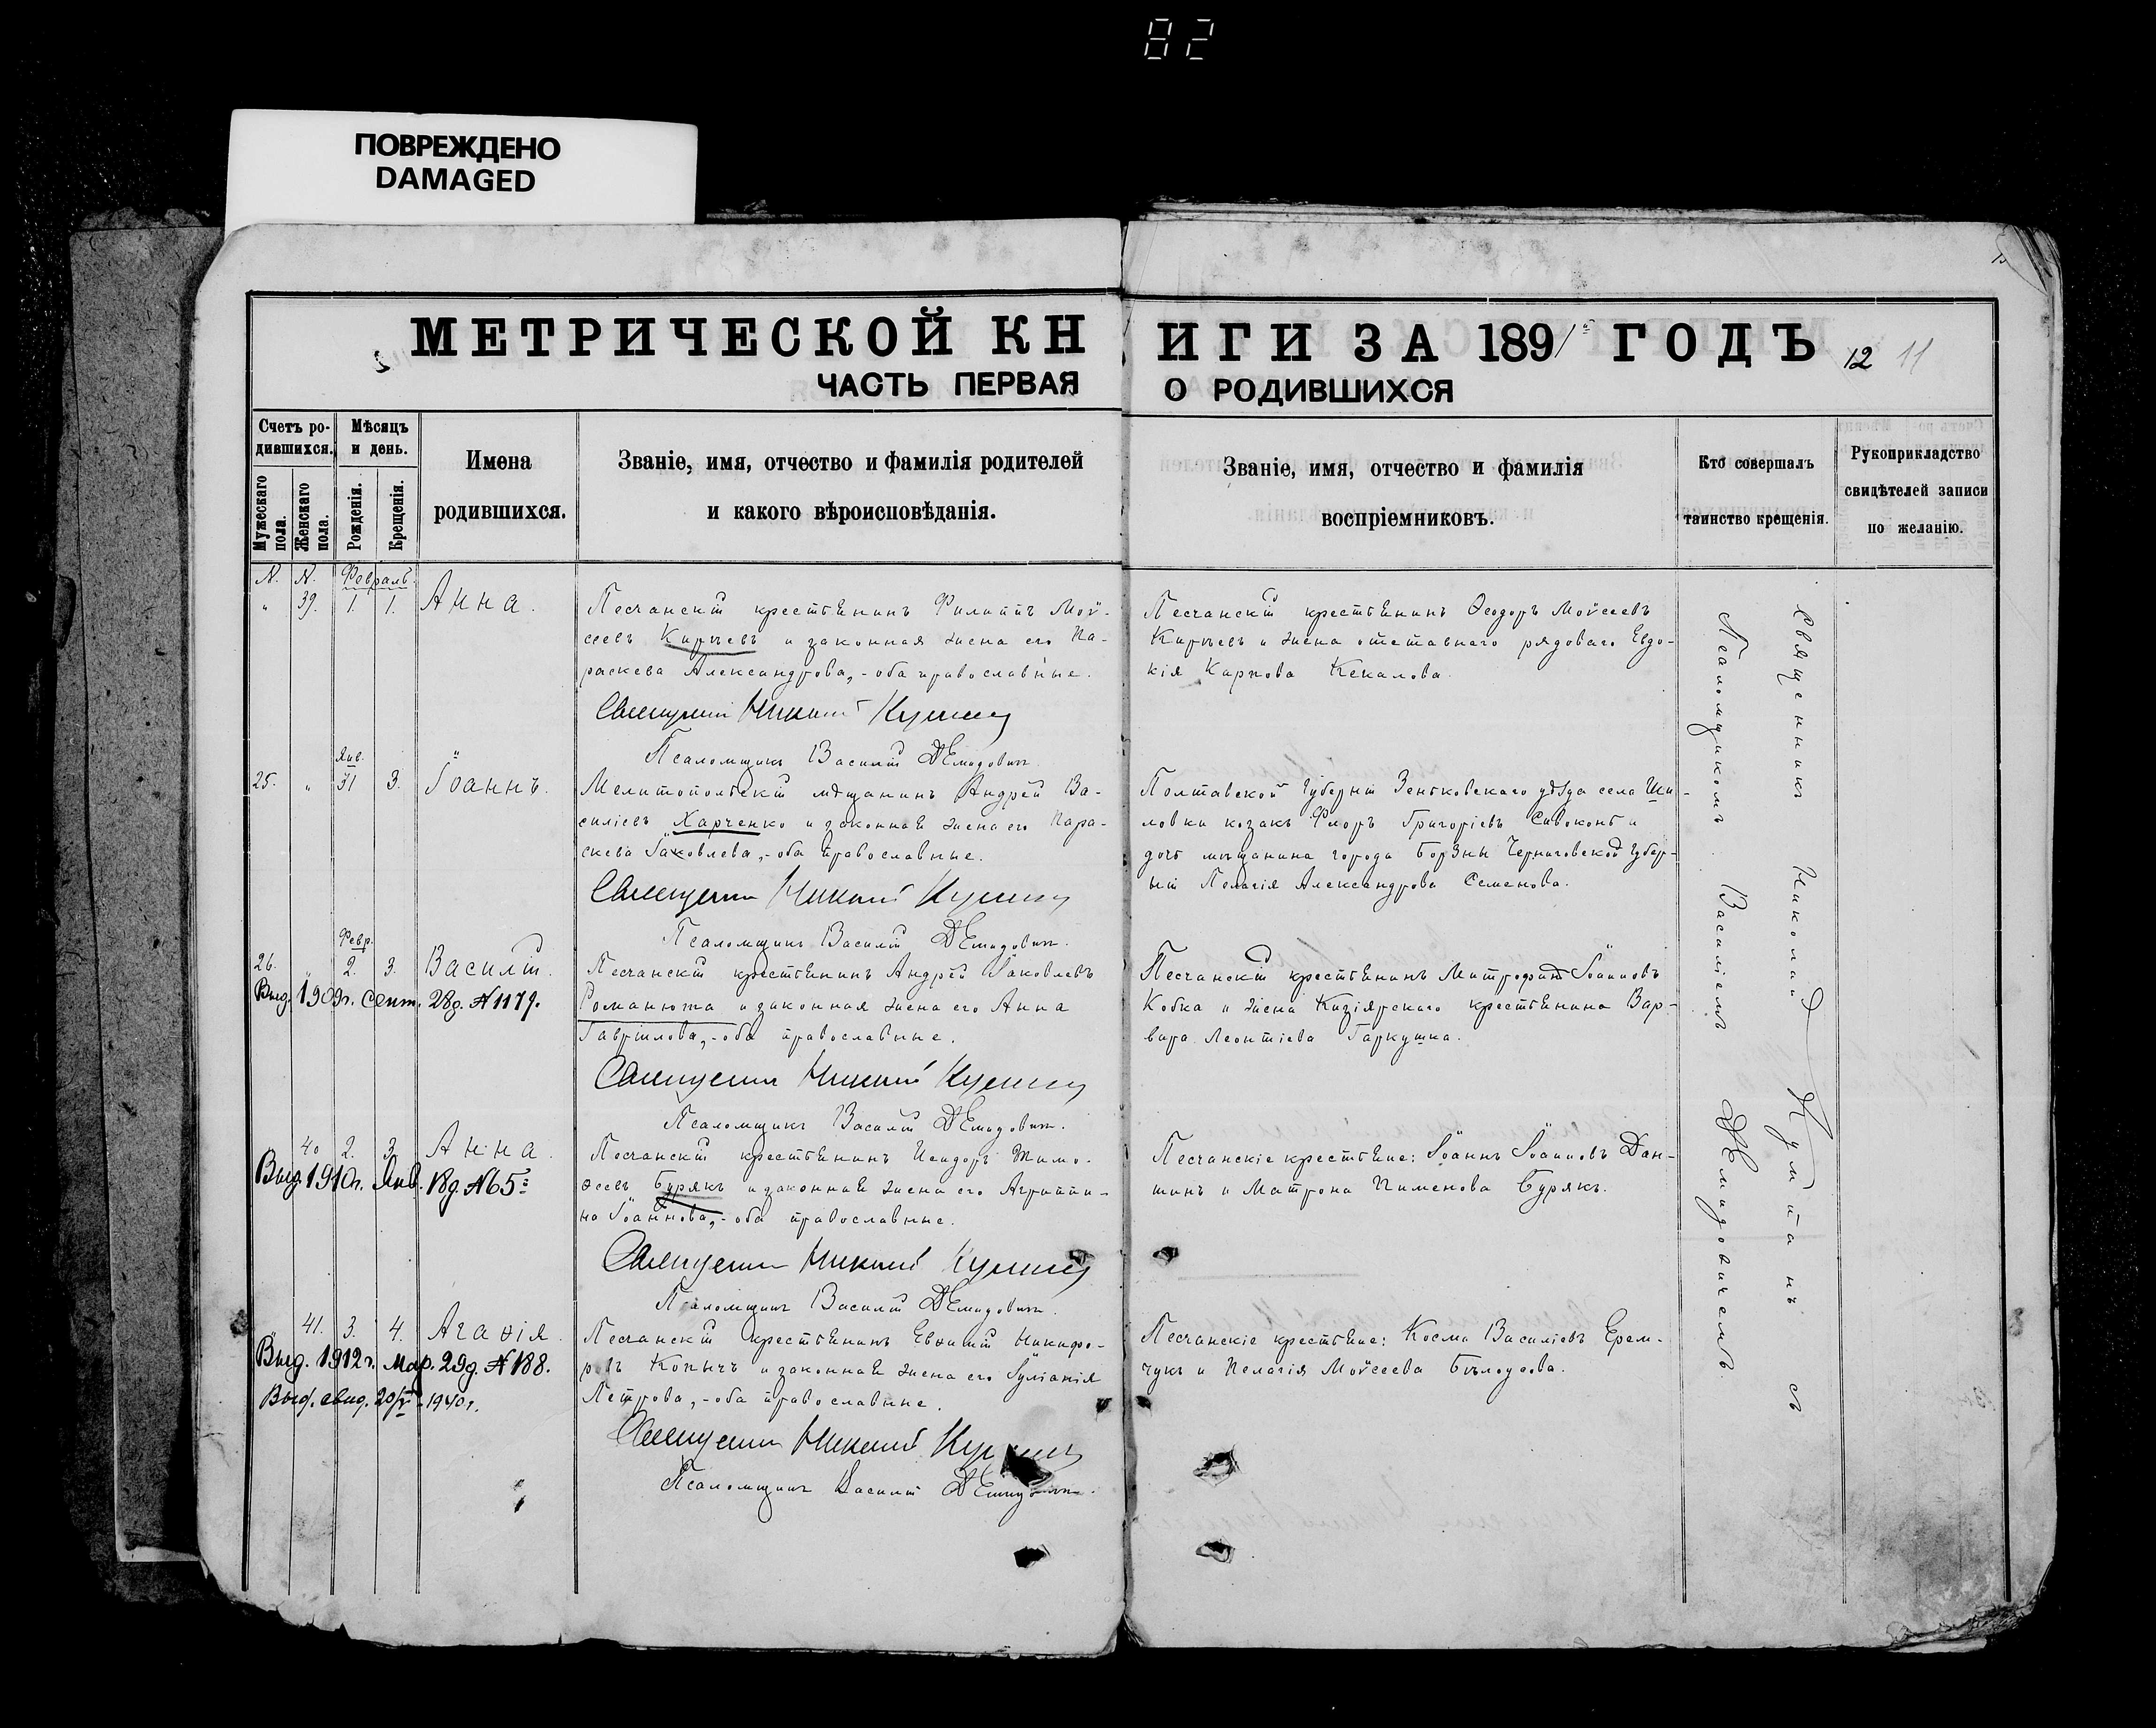 82
ПОВРЕЖДЕНО
DAMAGED
МЕТРИЧЕСКОЙ КНИГИ ЗА 1891 ГОДЪ
12 11
ЧАСТЬ ПЕРВАЯ О РОДИВШИХСЯ
Счетъ ро-
дившихся.
Мужескаго пола.
Женскаго пола.
Мѣсяцъ
и день.
Рожденія.
Крещенія.
Имена
родившихся.
Званіе, имя, отчество и фамилія родителей
и какого вѣроисповѣданія.
Званіе, имя, отчество и фамилія
воспріемниковъ.
Кто совершалъ
таинство крещенія.
Рукоприкладство
свидѣтелей записи
по желанію.
N. N. Февраль.
" 39. 1. 1. Анна.
Песчанскій крестьянинъ Филиппъ Мои-
сеевъ и законная жена его Па-
раскева Александрова, - оба православные.
Священникъ Николай
Псаломщикъ Василій Демидовичъ.
Песчанскій крестьянинъ Ѳеодоръ Моисеевъ
и жена отставнаго рядоваго Евдо-
кія Карпова Кекалова.
Янв.
25. " 31 3. Іоаннъ.
Мелитопольскій мѣщанинъ Андрей Ва-
силіевъ Харченко и законная жена его Пара-
скева Іаковлева, - оба православные.
Священникъ Николай
Псаломщикъ Василій Демидовичъ.
Полтавской губерніи Зеньковскаго уѣзда села Ши-
ловки козакъ Флоръ Григоріевъ Сивоконь и
дочь мѣщанина города Борзны Черниговской губер-
ніи Пелагія Александрова Семенова.
Февр.
26. " 2. 3. Василій.
Выд. 1909г. Сент. 28д. №1179.
Песчанскій крестьянинъ Андрей Іаковлевъ
Романюта и законная жена его Анна
Гавріилова, - оба православные.
Священникъ Николай
Псаломщикъ Василій Демидовичъ.
Песчанскій крестьянинъ Митрофанъ Іоанновъ
Кобка и жена Кизіярскаго крестьянина Вар-
вара Леонтіева Гаркушка.
40 2. 3. Анна.
Выд. 1910г. Янв. 18д. №65
Песчанскій крестьянинъ Исидоръ Тимо-
ѳеевъ Бурякъ и законная жена его Агриппи-
на Іоаннова, - оба православные.
Священникъ Николай
Псаломщикъ Василій Демидовичъ.
Песчанскіе крестьяне: Іоаннъ Іоанновъ Дан-
шинъ и Матрона Пименова Бурякъ.
41. 3. 4. Агаѳія.
Выд. 1912г. Мар. 29д. №188.
Выд. свид. 20/V 1940г.
Песчанскій крестьянинъ Евѳимій Никифо-
ровъ Копычъ и законная жена его Іуліанія
Петрова, - оба православные.
Священникъ Николай
Псаломщикъ Василій Демидовичъ.
Песчанскіе крестьяне: Косма Василіевъ Ерем-
чукъ и Пелагія Моисеева Бѣлоусова.
Священникъ Николай съ
Псаломщикомъ Василіемъ Демидовичемъ